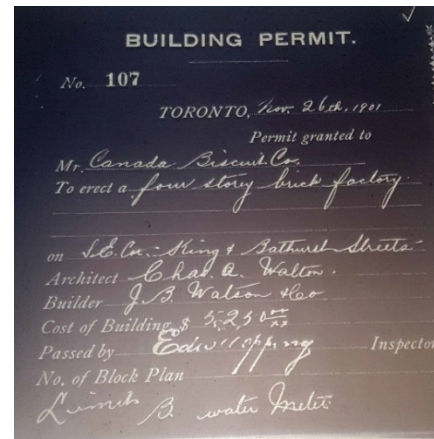 BUILDING PERMIT.
No. 107
TORONTO, Nov. 26th, 1901
Permit granted to
Mr. Canada Biscuit Co.
To erect a four storey brick factory
on S.E. Cor. King & Bathurst Streets
Architect Chas. A. Walton.
Builder J. B. Watson & Co
Cost of Building $
Passed by Edw Topping Inspector
No. of Block Plan
B. water